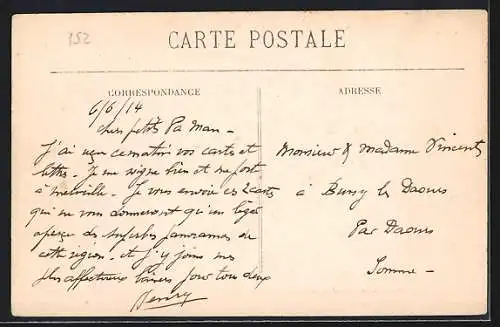 152
CARTE POSTALE
CORRESPONDANCE
ADRESSE
6/6/14
Chers petits Pa Man –
J'ai reçu ce matin vos cartes et
lettres. Je me soigne bien et me porte
à merveille. Je vous envoie ces 2 cartes
qui ne vous donneront qu'un léger
aperçu des superbes panoramas de
cette région. et j'y joins mes
plus affectueux baisers pour tous deux
Henry
Monsieur & Madame Vincent
à Bussy les Daours
Par Daours
Somme –